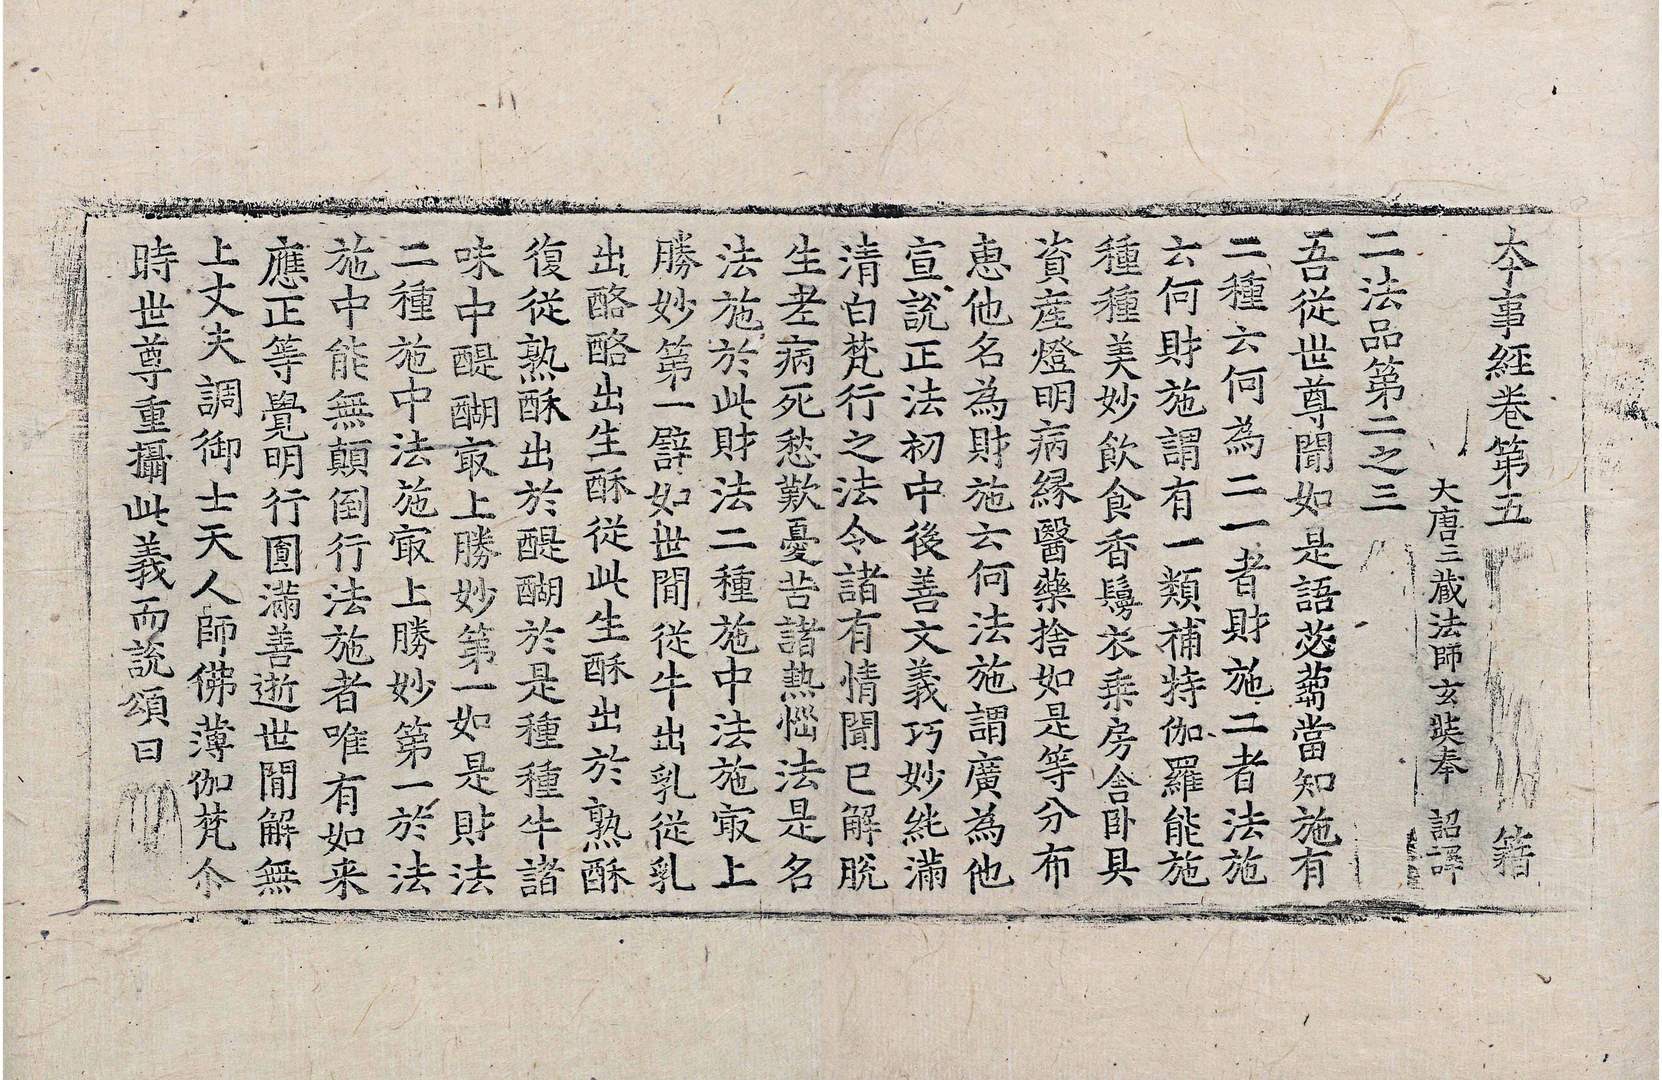 夲事經卷第五　籍
大唐三蔵法師玄奘奉　詔譯
二法品第二之三
吾從世尊聞如是語苾蒭當知施有
二種云何為二一者財施二者法施
云何財施謂有一類補特伽羅能施
種種美妙飲食香鬘衣乗房舎卧具
資産燈明病縁醫藥捨如是等分布
恵他名為財施云何法施謂廣為他
宣說正法初中後善文義巧妙純滿
清白梵行之法令諸有情聞已解脫
生老病死愁歎憂苦諸熱惱法是名
法施於此財法二種施中法施㝡上
勝妙第一譬如世間從牛出乳從乳
出酪酪出生酥從此生酥出於熟酥
復從熟酥出於醍醐於是種種牛諸
味中醍醐㝡上勝妙第一如是財法
二種施中法施㝡上勝妙第一於法
施中能無顛倒行法施者唯有如来
應正等覺明行圎滿善逝世間解無
上丈夫調御士天人師佛薄伽梵尒
時世尊重攝此義而說頌曰